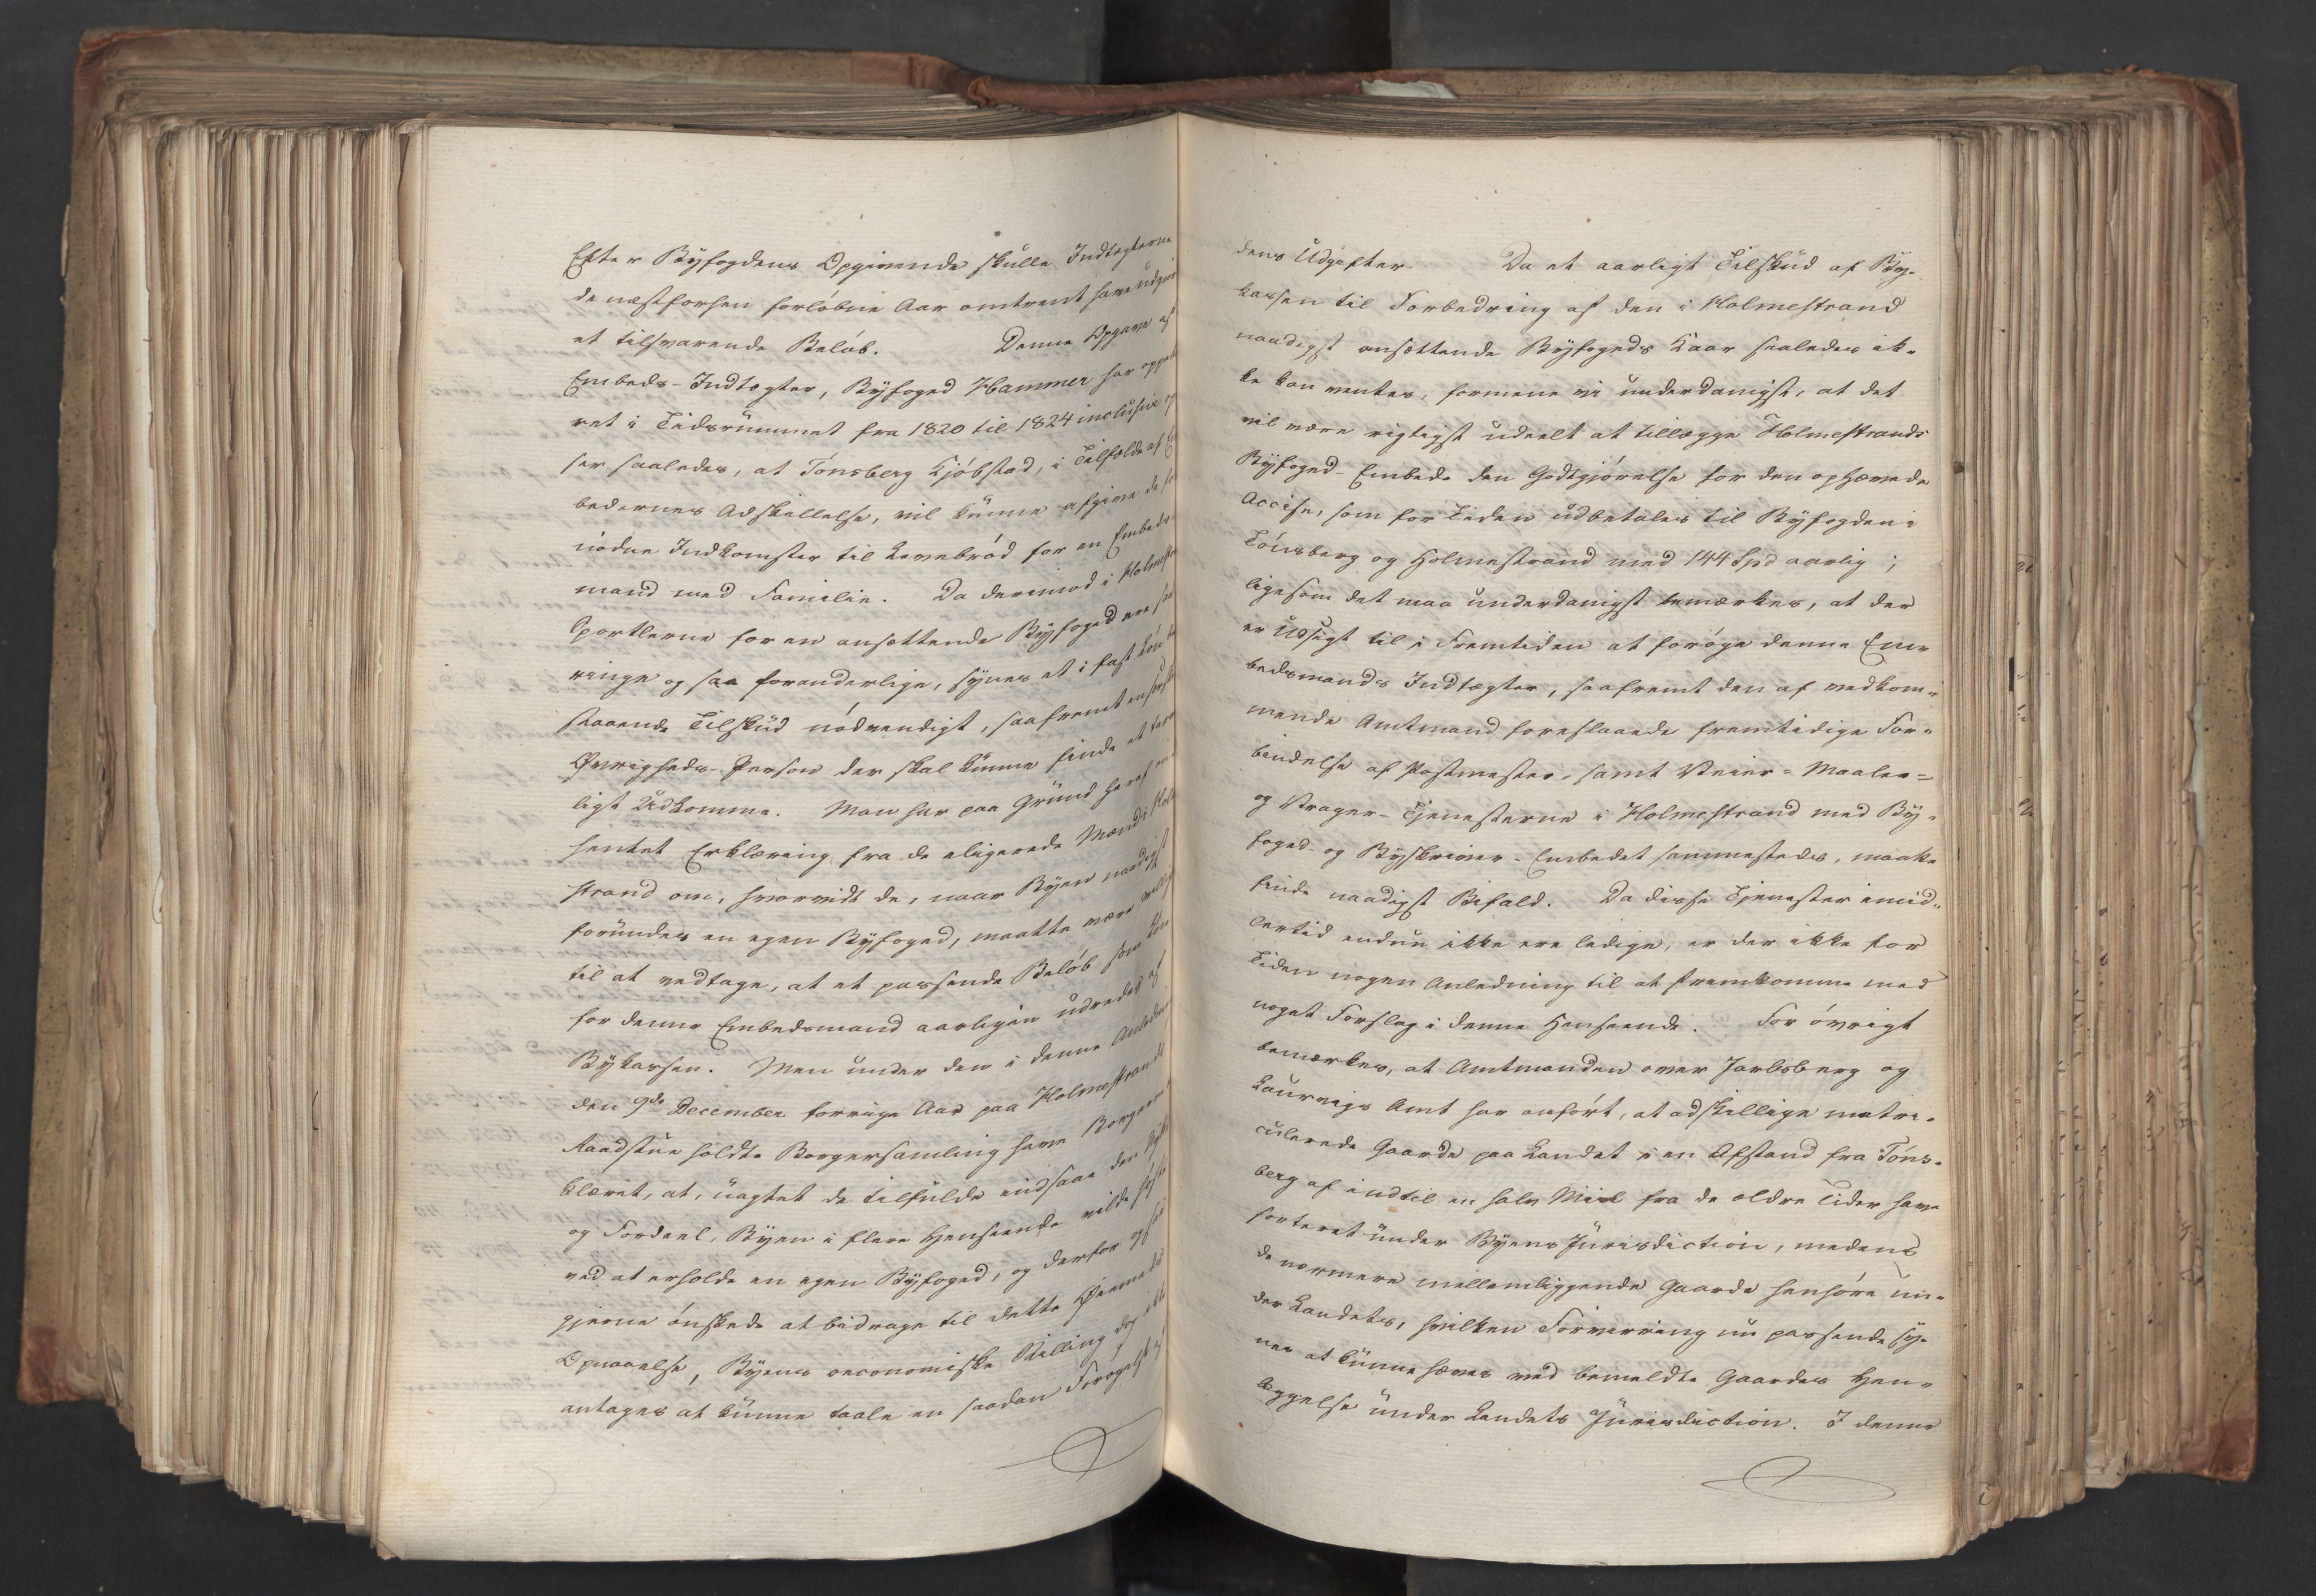 Efter Byfogdens Opgivende skulle Indtægterne
de næstforhen forløbne Aar omtrent have udgjort
et tilsvarende Beløb. Denne Opgave af
Embeds-Indtægter, Byfoged Hammer har oppebaa-
ret i Tidsrummet fra 1820 til 1824 inclusive
ser saaledes, at Tønsberg Kjøbstad, i Tilfælde af Em-
bedernes Adskillelse, vil kunne afgive de for-
nødne Indkomster til Levebrød for en Embeds-
mand med Familie. Da derimod i Holmestrand
Sportlerne for en ansættende Byfoged ere saa
ringe og saa foranderlige, synes et i fast Løn be-
staaende Tilskud nødvendigt, saafremt en saadan
Øvrigheds-Person der skal kunne finde et tarve-
ligt Udkomme. Man har paa Grund heraf ind-
hentet Erklæring fra de eligerede Mænd i Holme-
strand om, hvorvidt de, naar Byen naadigst
forundes en egen Byfoged, maatte være villige
til at vedtage, at et passende Beløb som Løn
for denne Embedsmand aarligen udredes af
Bykassen. Men under den i denne Anledning
den 9de December forrige Aar paa Holmestrands
Raadstue holdte Borgersamling have Borgerne er-
klæret, at, uagtet de tilfulde indsaae den Nytte
og Fordeel, Byen i flere Henseende vilde høste
ved at erholde en egen Byfoged, og derfor ogsaa
gjerne ønskede at bidrage til dette Øiemeds
Opnaaelse, Byens oeconomiske Stilling dog ikke
antages at kunne taale en saadan Forøgelse i
dens Udgifter. Da et aarligt Tilskud af By-
kassen til Forbedring af den i Holmestrand
naadigst ansættende Byfogeds Kaar saaledes ik-
ke kan ventes, formene vi underdanigst, at det
vil være rigtigst udeelt at tillægge Holmestrands
Byfoged-Embede den Godtgjørelse for den ophævede
Accise, som for Tiden udbetales til Byfogden i
Tønsberg og Holmestrand med 144 Spd aarlig;
ligesom det maa underdanigst bemærkes, at der
er Udsigt til i Fremtiden at forøge denne Em-
bedsmands Indtægter, saafremt den af vedkom-
mende Amtmand foreslaaede fremtidige For-
bindelse af Postmester, samt Veier- Maaler-
og Vrager-Tjenesterne i Holmestrand med By-
foged- og Byskriver-Embedet sammesteds, maatte
finde naadigst Bifald. Da disse Tjenester imid-
lertid endnu ikke ere ledige, er der ikke for
Tiden nogen Anledning til at fremkomme med
noget Forslag i denne Henseende. For øvrigt
bemærkes, at Amtmanden over Jarlsberg og
Laurvigs Amt har anført, at adskillige matri-
culerede Gaarde paa Landet i en Afstand fra Tøns-
berg af indtil en halv Miil fra de ældre Tider have
sorteret under Byens Jurisdiction, medens
de nærmere mellemliggende Gaarde henhøre un-
der Landets, hvilken Forvirring nu passende sy-
nes at kunne hæves ved bemeldte Gaardes Hen-
læggelse under Landets Jurisdiction. I denne